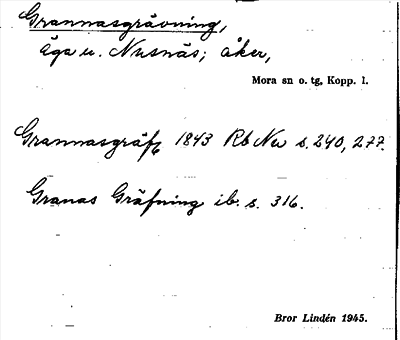 Grannasgrävning,
äga u. Nusnäs; åker,
Mora sn o. tg, Kopp. l.
Grannasgräf 1843 Rb Nu s. 240, 277.
Granas Gräfning ib. s. 316.
Bror Lindén 1945.